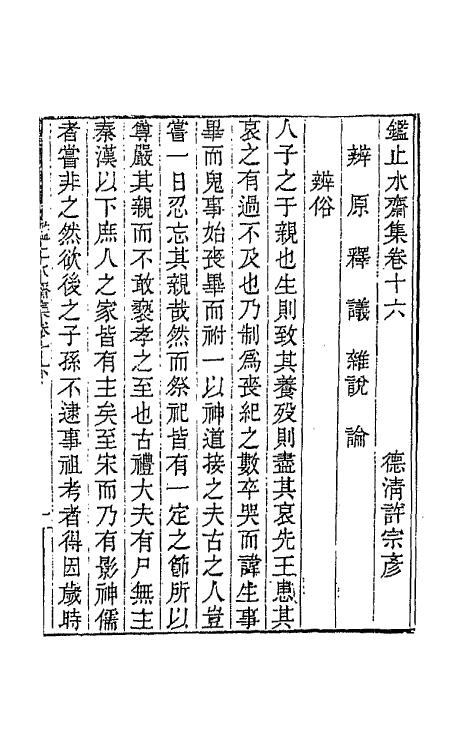 鑑止水齋集卷十六
德清許宗彥
辨 原 釋 議 雜說 論
辨俗
人子之于親也生則致其養殁則盡其哀先王患其
哀之有過不及也乃制爲喪紀之數卒哭而諱生事
畢而鬼事始喪畢而祔一以神道接之夫古之人豈
嘗一日忍忘其親哉然而祭祀皆有一定之節所以
尊嚴其親而不敢褻孝之至也古禮大夫有尸無主
秦漢以下庶人之家皆有主矣至宋而乃有影神儒
者嘗非之然欲後之子孫不逮事祖考者得因歲時
鑑止水齋集卷十六
一